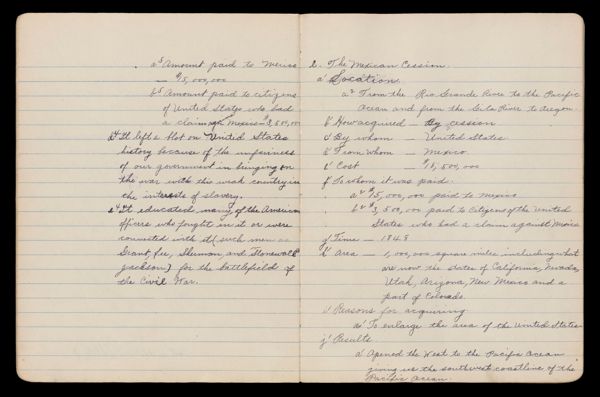 a⁵ Amount paid to Mexico
— $15,000,000
b⁵ Amount paid to citizens
of United States who had
a claim Mexico — $3,500,000
d⁴ It left a blot on United States
history because of the unfairness
of our government in bringing on
the war with this weak country in
the interests of slavery.
e⁴ It educated many of the American
officers who fought in it or were
connected with it (such men as
Grant, Lee, Sherman, and Stonewall
Jackson) for the battlefield of
the Civil War.
2. The Mexican Cession.
a' Location.
a² From the Rio Grande River to the Pacific
Ocean and from the Gila River to Oregon.
b' How acquired — By cession
d' By whom — United States
e' From whom — Mexico.
e' Cost — $18,500,000
f' To whom it was paid.
a² $15,000,000 paid to Mexico
b² $3,500,000 paid to citizens of the United
States who had a claim against Mexico
g' Time — 1848
h' Area — 1,000,000 square miles including what
are now the states of California, Nevada,
Utah, Arizona, New Mexico and a
part of Colorado.
i' Reasons for acquiring
a² To enlarge the area of the United States.
j' Results
a² Opened the West to the Pacific Ocean
giving us the southwest coastline of the
Pacific Ocean.